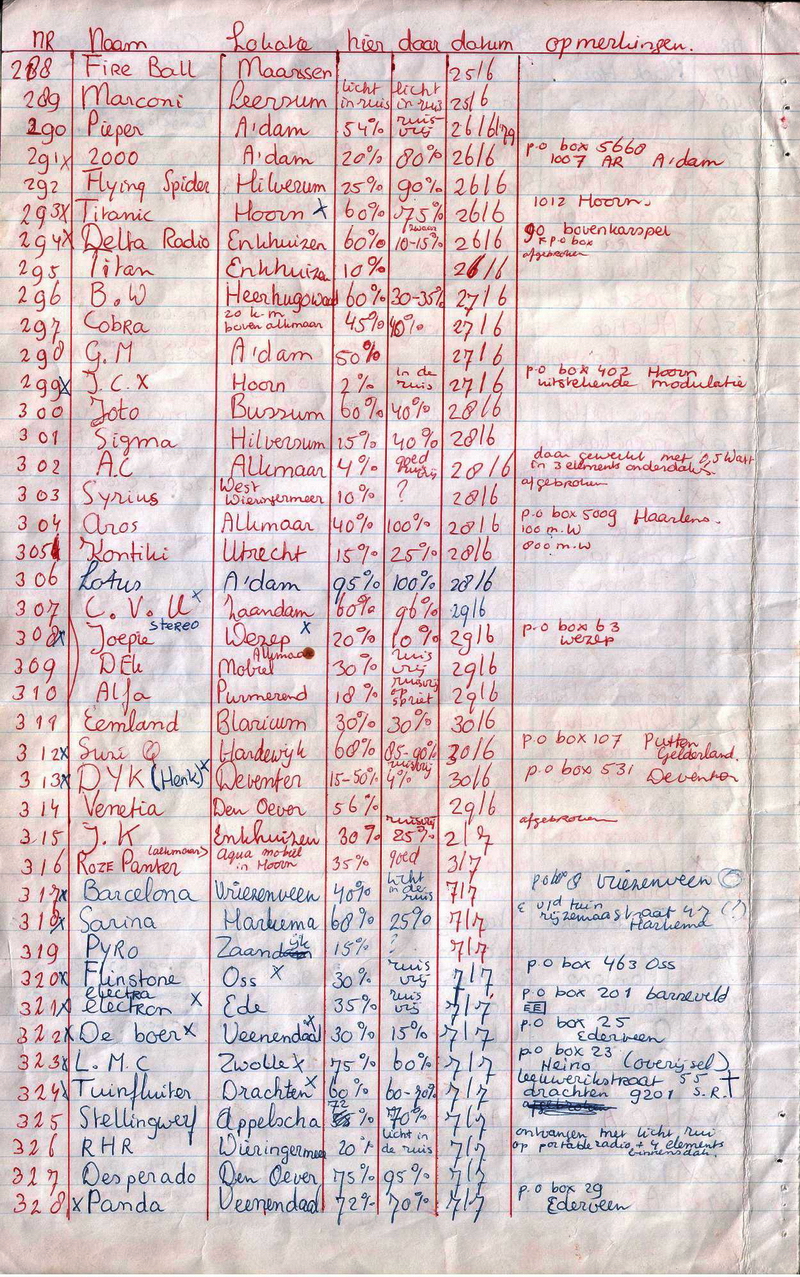 NR Naam Lokatie hier daar datum opmerkingen.
288 Fire Ball Maarssen 25/6
289 Marconi Leersum licht in ruis licht in ruis 25/6
290 Pieper A'dam 54% ruis vrij 26/6/79
291x 2000 A'dam 20% 80% 26/6 p.o box 5668 1007 AR A'dam
292 Flying Spider Hilversum 25% 90% 26/6
293x Titanic Hoorn x 60% 75% 26/6 1012 Hoorn.
294x Delta Radio Enkhuizen 60% zwaar 10-15% 26/6 90 bovenkarspel x p.o box
295 Titan Enkhuizen 10% 26/6 afgebroken
296 B.W Heerhugowaard 60% 30-35% 27/6
297 Cobra 20 k.m boven alkmaar 45% 40% 27/6
298 G.M A'dam 50% 27/6
299x J.C.X Hoorn 2% in de ruis 27/6 p.o box 402 Hoorn uitstekende modulatie
300 Joto Bussum 60% 40% 28/6
301 Sigma Hilversum 15% 40% 28/6
302 A.C Alkmaar 4% goed 28/6 daar gewerkt met 0,5 Watt in 3 elements
303 Syrius West Wieringermeer 10% ? 28/6 afgebroken
304 Aros Alkmaar 40% 100% 28/6 p.o box 5009 Haarlem. 100 m.W
305 Kontiki Utrecht 15% 25% 28/6 800 m.W
306 Lotus A'dam 95% 100% 28/6
307 C.V.U x Zaandam 60% 96% 29/6
308x Joepie stereo Wezep x 20% 10% 29/6 p.o box 63 wezep
309 DEK Mobiel Alkmaar 30% ruis vrij 29/6
310 Alfa Purmerend 18% ruisvrij op spriet 29/6
311 Eemland Blaricum 30% 30% 30/6
312x Suzi Q Hardewyk 68% 85-90% 30/6 p.o box 107 Putten Gelderland.
313x DYK (Henk) x Deventer 15-50% ruisvrij 4% 30/6 p.o box 531 Deventer
314 Venetia Den Oever 56% 29/6
315 J.K Enkhuizen 30% ruisvrij 25% 2/7 afgebroken
316 Roze Panter (alkmaar) Aqua mobiel in Hoorn 35% goed 3/7
317x Barcelona Vriezenveen 40% licht in de ruis 7/7 8 vriezenveen
318x Sarina Harkema 68% 25% 7/7 v/d tuin rijzemaastraat 47 (!) Harkema
319 Pyro Zaandijk 15% ? 7/7
320x Flinstone Oss x 30% ruis vrij 7/7 p.o box 463 Oss
321x electra electron x Ede 35% ruis vrij 7/7 p.o box 201 barneveld EE
322x De boer x Veenendaal x 30% 15% 7/7 p.o box 25 Ederveen
323x L.M.C Zwolle x 75% 60% 7/7 p.o box 23 Heino (overijsel)
324x Tuinfluiter Drachten x 60% 60-70% 7/7 leeuwerikstraat 55 drachten 9201 S.R.
325 Stellingwerf Appelscha 72% 70% 7/7 afgebroken
326 RHR Wieringermeer 20% licht in de ruis 7/7 ontvangen met licht ruis op portable radio + 4 elements binnensdak.
327 Desperado Den Oever 75% 95% 7/7
328x Panda Veenendaal 72% 70% 7/7 p.o box 29 Ederveen